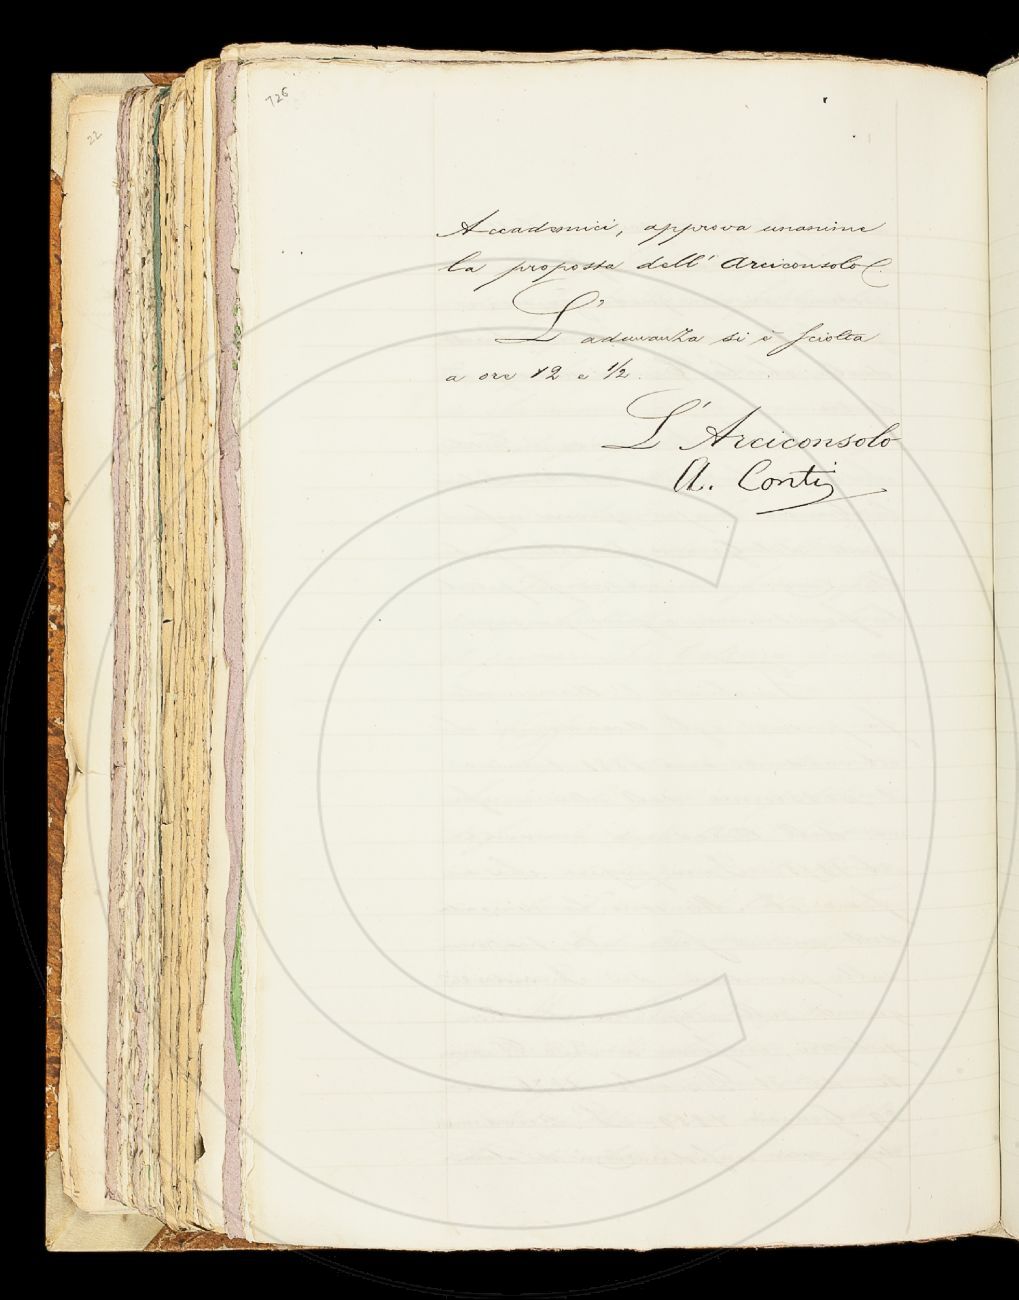 726
22
Accademici, approva unanime
la proposta dell' Arciconsolo C.
L' adunanza si è sciolta
a ore 12 e 1/2.
L' Arciconsolo
A. Conti